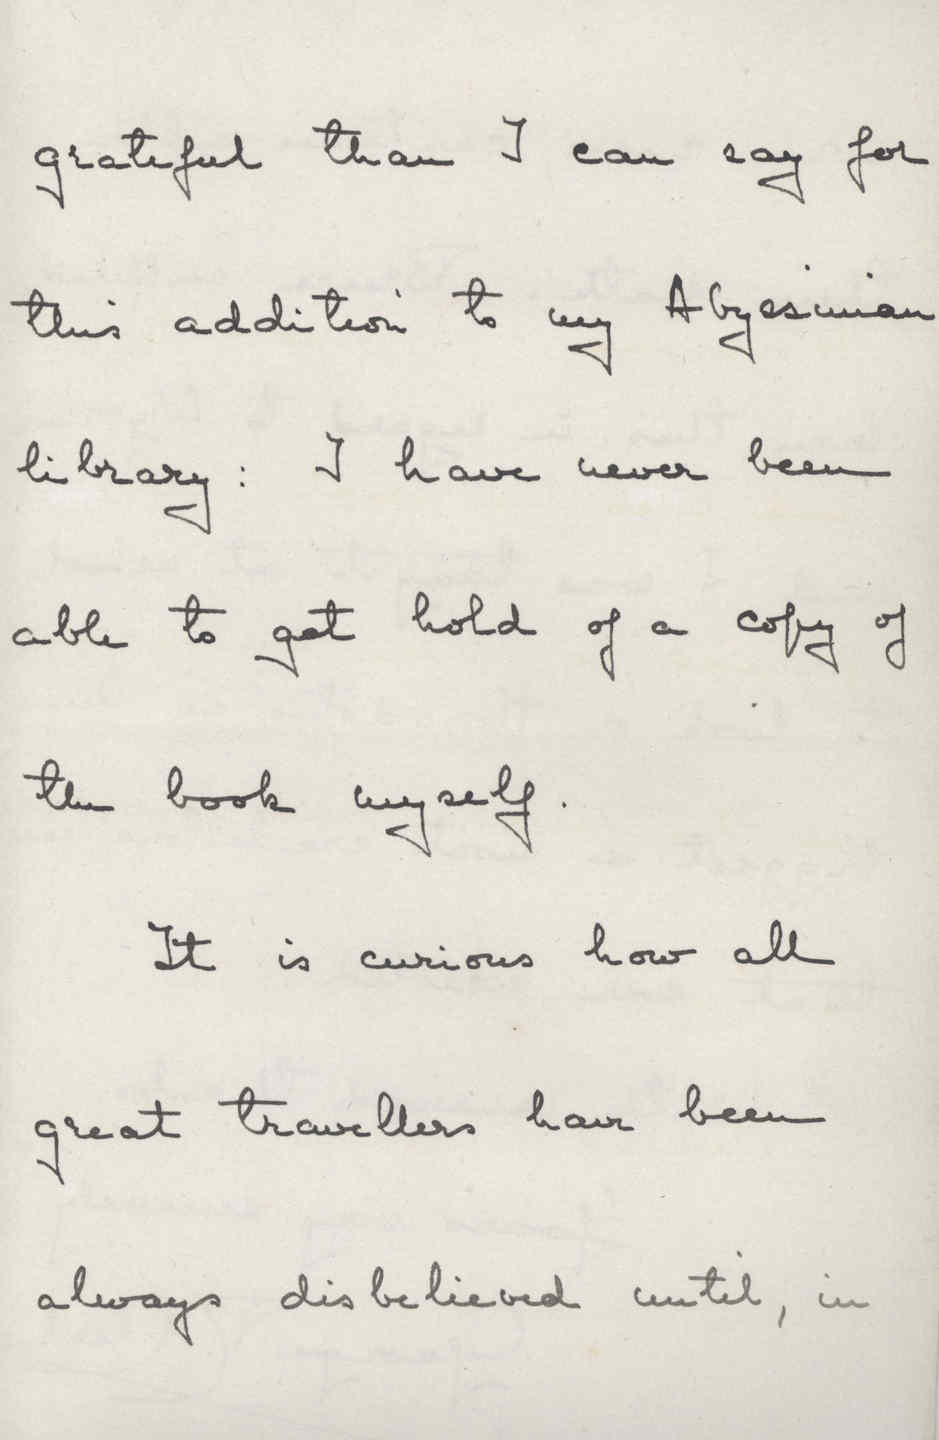 grateful than I can say for
this addition to my Abyssinian
library: I have never been
able to get hold of a copy of
the book myself.
It is curious how all
great travellers have been
always disbelieved until, in